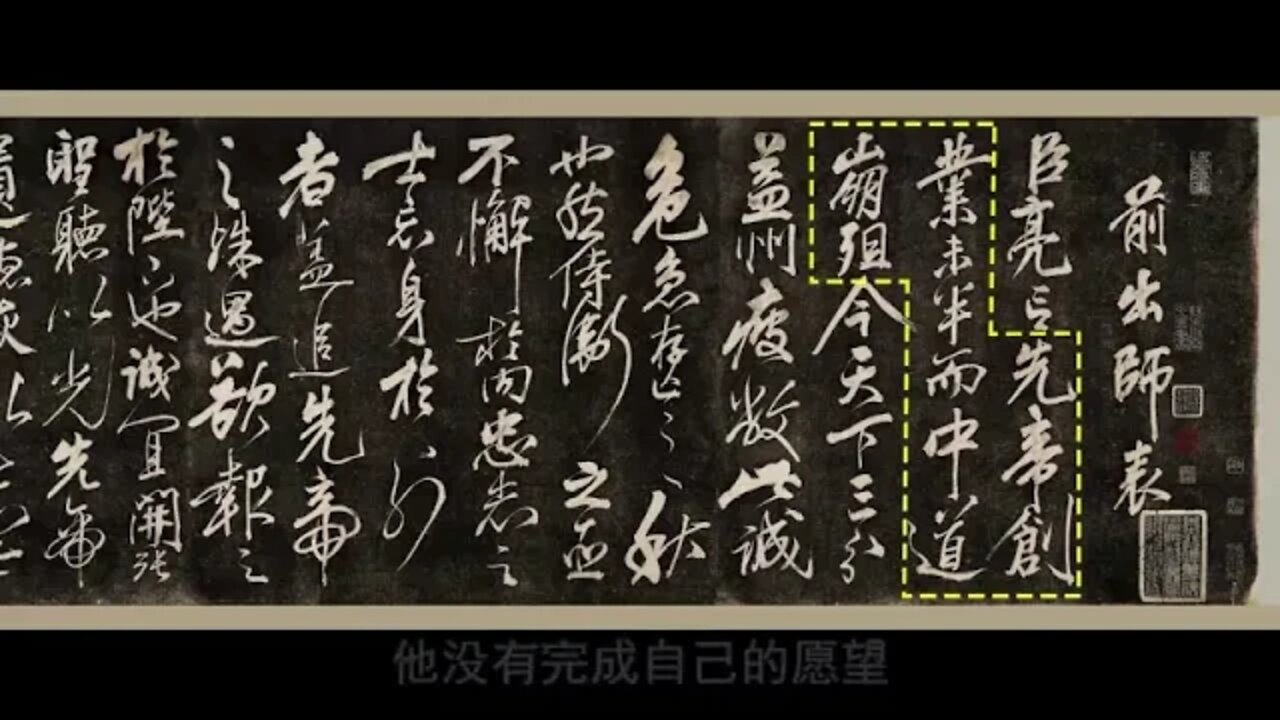 前出師表
臣亮言先帝創
業未半而中道
崩殂今天下三分
益州疲敝此誠
危急存亡之秋
也然侍衛之臣
不懈於内忠志之
士忘身於外
者盖追先帝
之殊遇欲報之
於陛下也誠宜開張
聖聽以光先帝
他没有完成自己的愿望